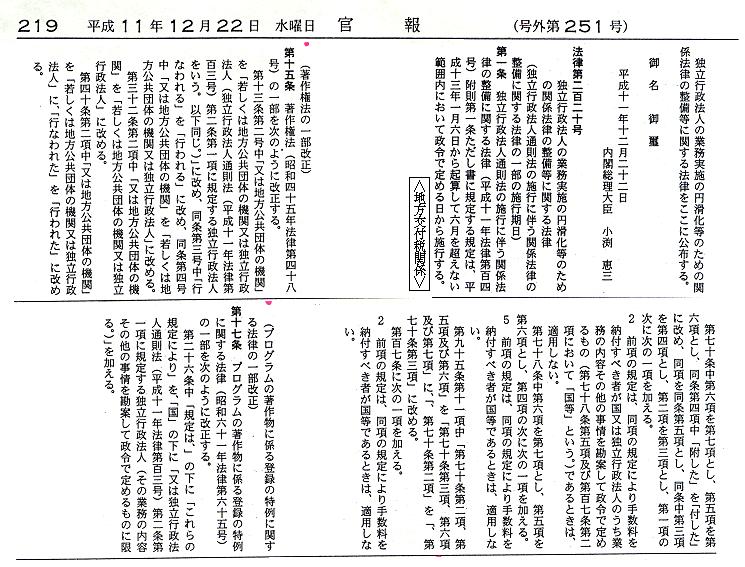 219 平成11年12月22日 水曜日 官 報 (号外第251号)
独立行政法人の業務実施の円滑化等のための関
係法律の整備等に関する法律をここに公布する。
御 名 御 璽
平成十一年十二月二十二日
内閣総理大臣 小渕 恵三
法律第二百二十号
独立行政法人の業務実施の円滑化等のため
の関係法律の整備等に関する法律
(独立行政法人通則法の施行に伴う関係法律の
整備に関する法律の一部の施行期日)
第一条 独立行政法人通則法の施行に伴う関係法
律の整備に関する法律(平成十一年法律第百四
号)附則第一条ただし書に規定する規定は、平
成十三年一月六日から起算して六月を超えない
範囲内において政令で定める日から施行する。
<地方交付税関係>
(著作権法の一部改正)
第十五条 著作権法(昭和四十五年法律第四十八
号)の一部を次のように改正する。
第十三条第二号中「又は地方公共団体の機関」
を「若しくは地方公共団体の機関又は独立行政
法人(独立行政法人通則法(平成十一年法律第
百三号)第二条第一項に規定する独立行政法人
をいう。以下同じ。)」に改め、同条第三号中「行
なわれる」を「行われる」に改め、同条第四号
中「又は地方公共団体の機関」を「若しくは地
方公共団体の機関又は独立行政法人」に改める。
第三十二条第二項中「又は地方公共団体の機
関」を「若しくは地方公共団体の機関又は独立
行政法人」に改める。
第四十条第二項中「又は地方公共団体の機関」
を「若しくは地方公共団体の機関又は独立行政
法人」に、「行なわれた」を「行われた」に改め
る。
第七十条中第六項を第七項とし、第五項を第
六項とし、同条第四項中「附した」を「付した」
に改め、同項を同条第五項とし、同条中第三項
を第四項とし、第二項を第三項とし、第一項の
次に次の一項を加える。
2 前項の規定は、同項の規定により手数料を
納付すべき者が国又は独立行政法人のうち業
務の内容その他の事情を勘案して政令で定め
るもの(第七十八条第五項及び第百七条第二
項において「国等」という。)であるときは、
適用しない。
第七十八条中第六項を第七項とし、第五項を
第六項とし、第四項の次に次の一項を加える。
5 前項の規定は、同項の規定により手数料を
納付すべき者が国等であるときは、適用しな
い。
第九十五条第十一項中「第七十条第二項、第
五項及び第六項」を「第七十条第三項、第六項
及び第七項」に、「、第七十条第二項」を「、第
七十条第三項」に改める。
第百七条に次の一項を加える。
2 前項の規定は、同項の規定により手数料を
納付すべき者が国等であるときは、適用しな
い。
(プログラムの著作物に係る登録の特例に関す
る法律の一部改正)
第十七条 プログラムの著作物に係る登録の特例
に関する法律(昭和六十一年法律第六十五号)
の一部を次のように改正する。
第二十六条中「規定は、」の下に「これらの
規定により」を、「国」の下に「又は独立行政法
人通則法(平成十一年法律第百三号)第二条第
一項に規定する独立行政法人(その業務の内容
その他の事情を勘案して政令で定めるものに限
る。)」を加える。